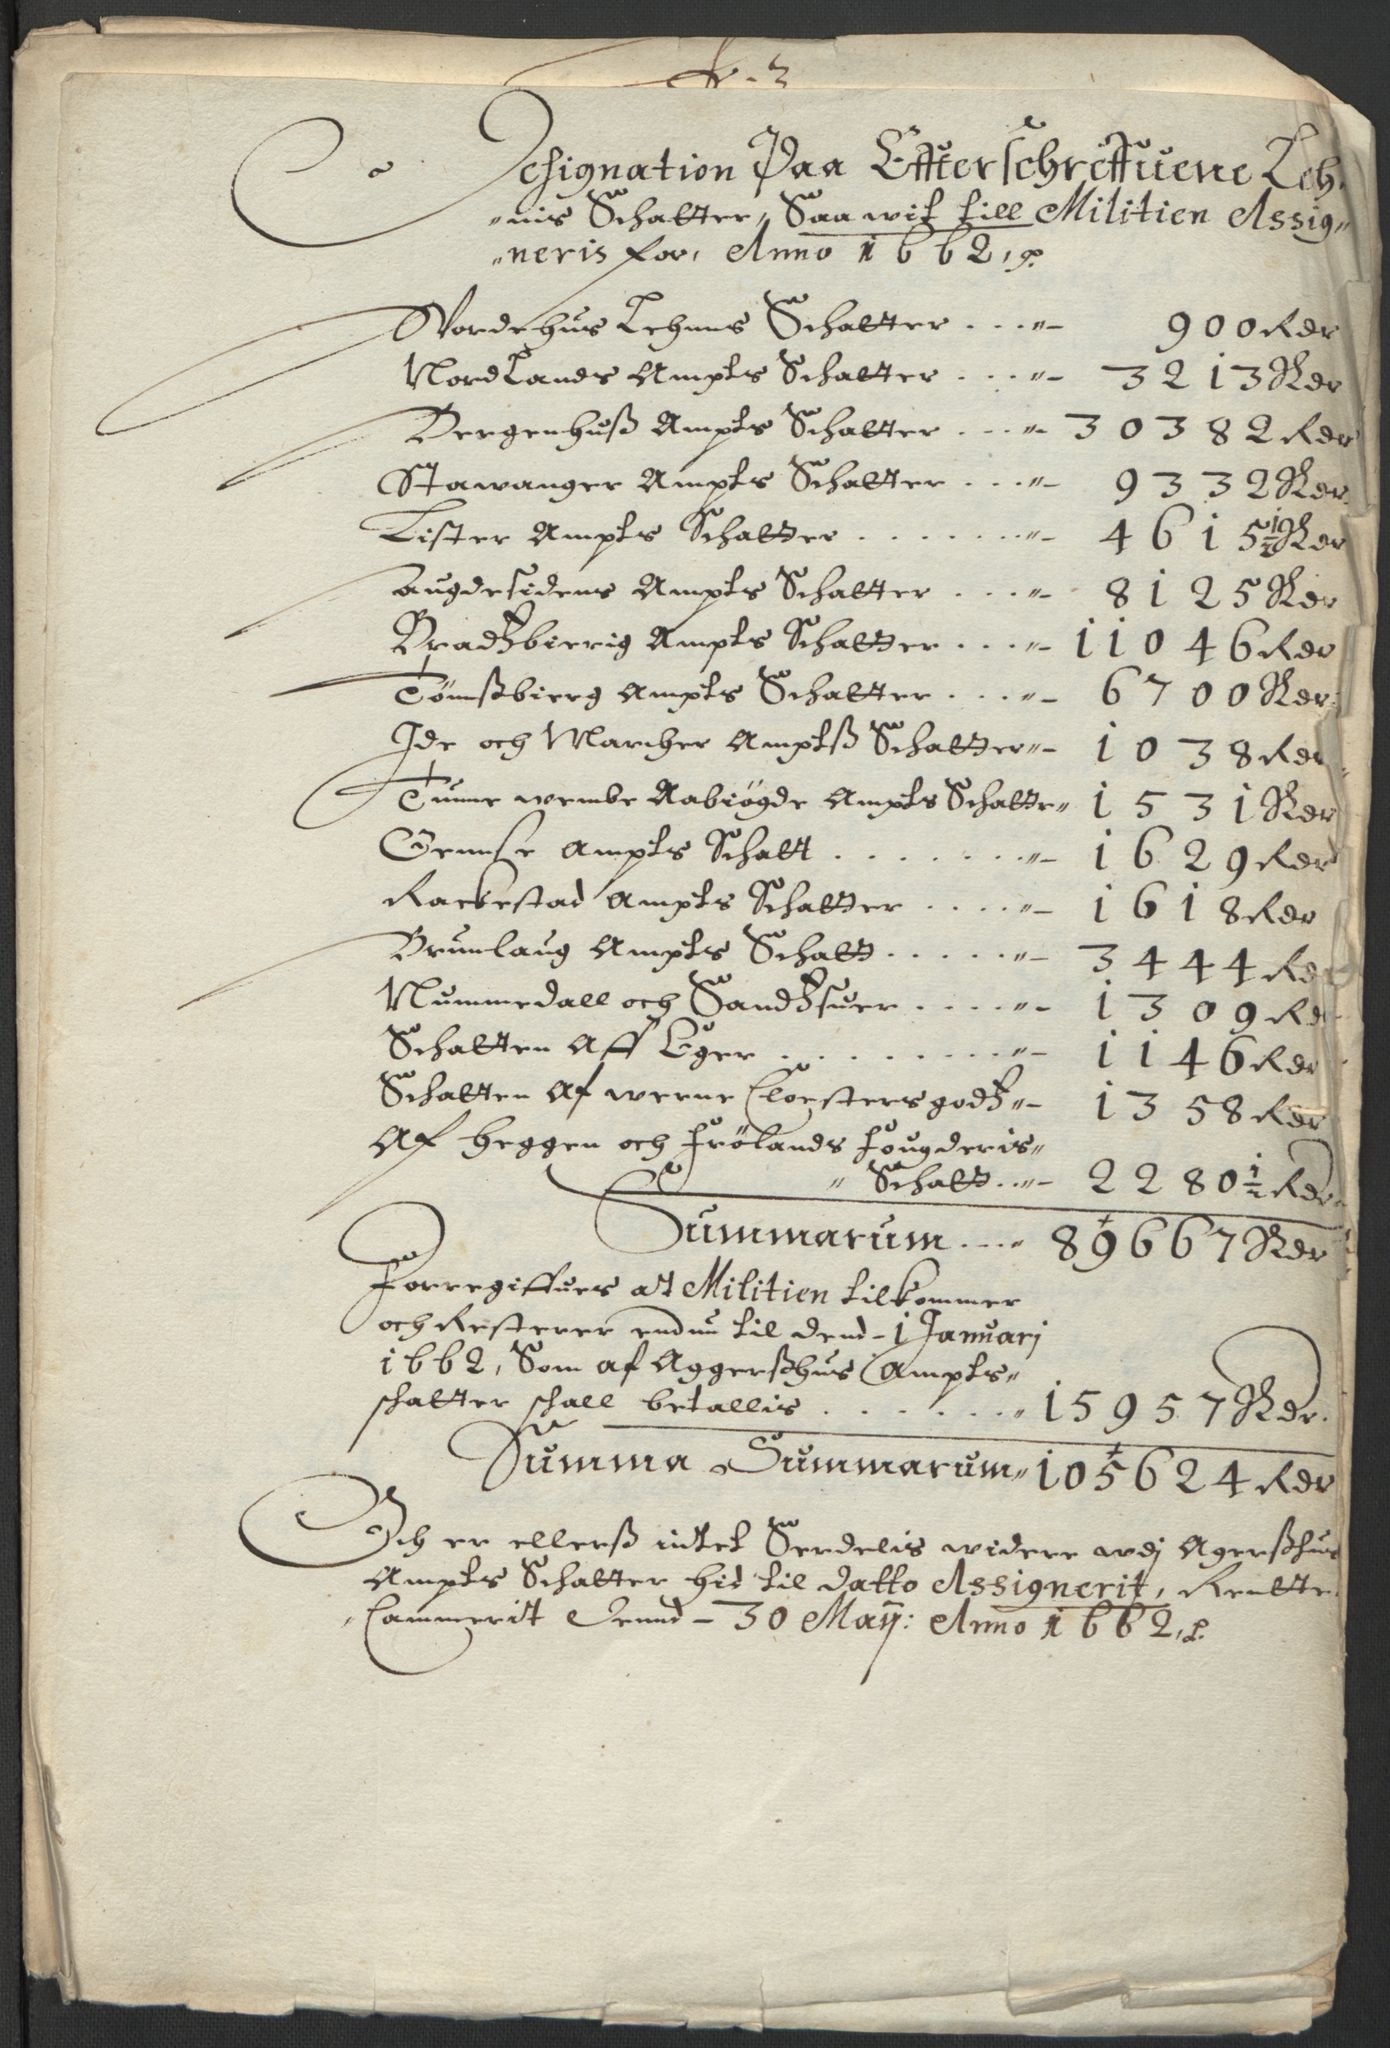 Designation Paa Effterschreffuene Leh„
„nis Schatter, Saawit till Militien Assig„
„neris for, Anno 1662,
Wordehus Lehnns Schatter . . . „– 900 Rdr
NordLands Ampts Schatter . . . „– 3213 Rdr
Bergenhuß Ampts Schatter . . . „– 30382 Rdr
Stawanger Ampts Schatter . . . „– 9332 Rdr
Lister Ampts Schatter . . . . . . . „– 4615½ Rdr
Augdesidens Ampts Schatter . . . „– 8125 Rdr
Bradtzbierig Ampts Schatter . . . „– 11046 Rdr
Tømßbierg Ampts Schatter . . . „– 6700 Rdr
Ide och Marcher Amptß Schatter „– 1038 Rdr
Tunne wembe Aabiøgde Ampts Schatte„ 1531 Rdr
Ampts Schatt . . . . . . . „– 1629 Rdr
Rackestad Ampts Schatter . . . . „– 1618 Rdr
Brunlaug Ampts Schatt . . . . . „– 3444 Rd
Nummedall och Sandtzsuer . . . . „– 1309 Rd
Schatten Aff Eger . . . . . . . . . „– 1146 Rdr
Schatten Af werne Cloestersgodtz „– 1358 Rdr
Af Heggen och Frølands Fougderis„
„ Schatt . . „– 2280½ Rdr
Summarum . . . . „ 89667 Rdr
Forregiffues at Militien tilkommer
och Resterer endnu til dend – 1 Januarj
1662, Som af Aggerßhus Ampts„
schatter schall betallis . . . . . . . „ 15957 Rdr.
Summa Summarum „ 105624 Rdr
Och er ellerß intet Serdelis widere wdj Agerßhus
Ampts Schatter hid til datto Assignerit, Rentte
Cammerit Dend – 30 Maij: Anno 1662,